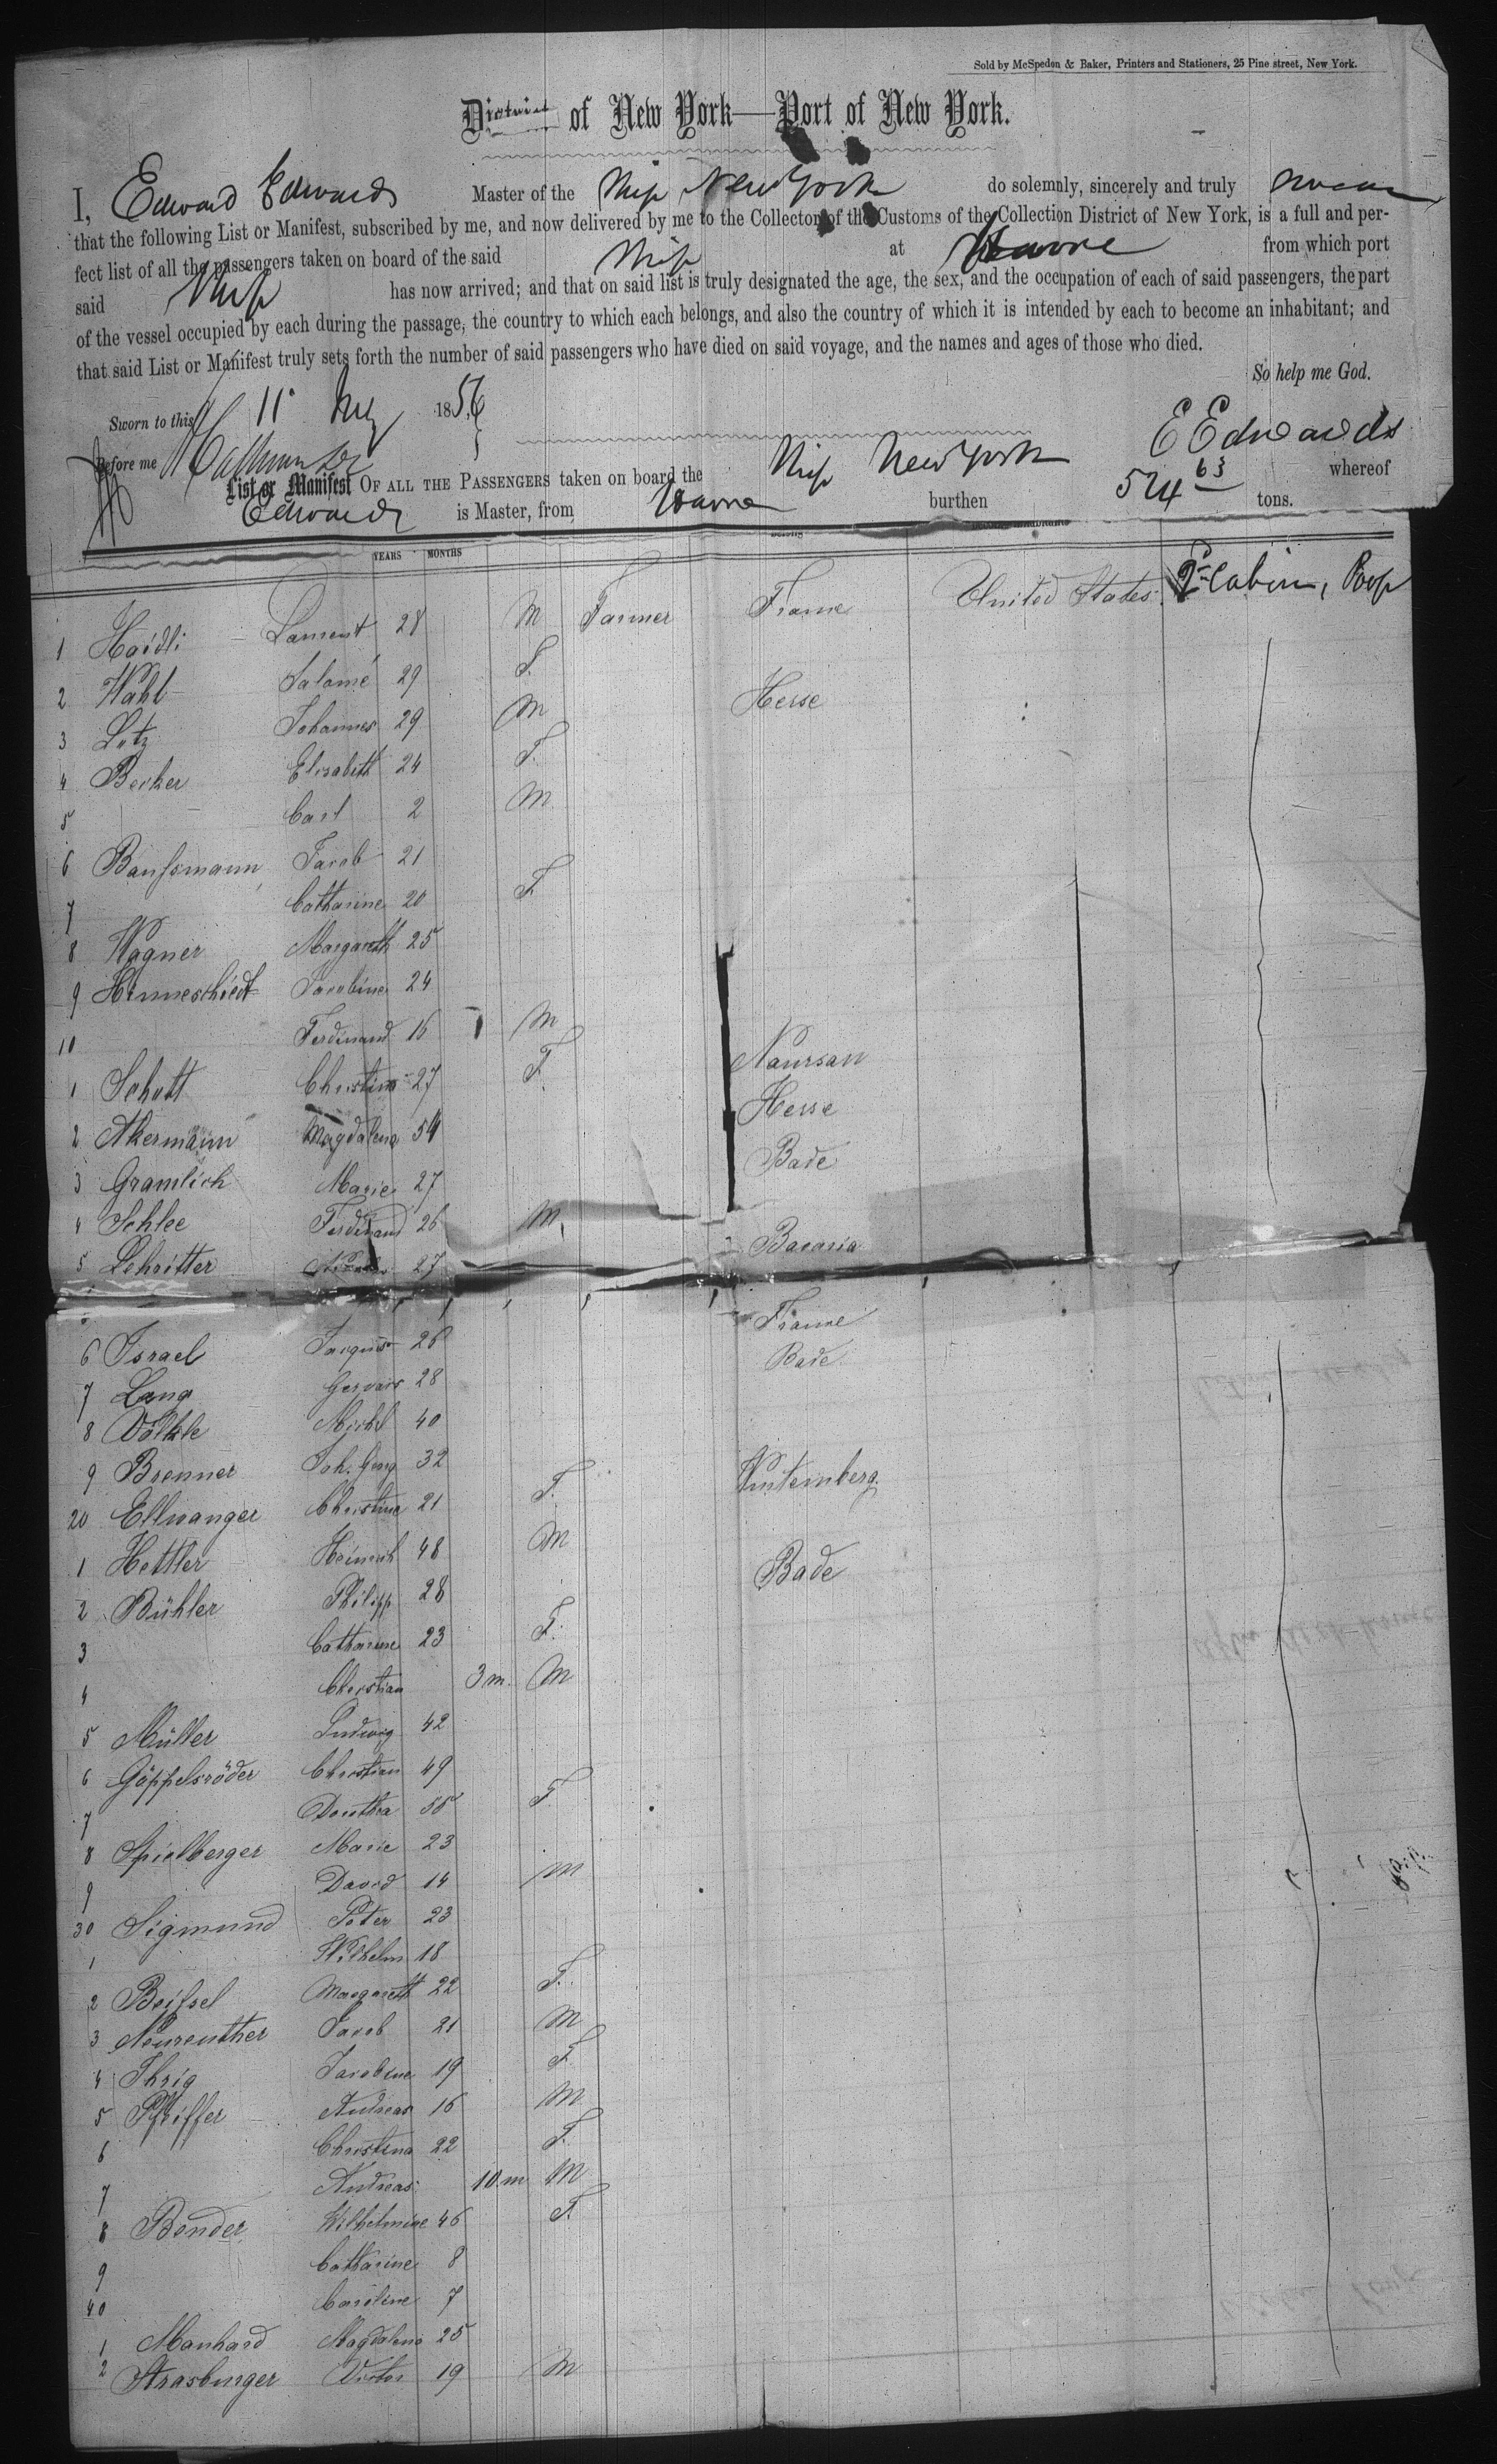 Sold by McSpedon & Baker, Printers and Stationers, 25 Pine street, New York.
District of New York—Port of New York.
I, Edward Edwards Master of the Ship New York do solemnly, sincerely and truly swear
that the following List or Manifest, subscribed by me, and now delivered by me to the Collector of the Customs of the Collection District of New York, is a full and per-
fect list of all the passengers taken on board of the said Ship at Havre from which port
said Ship has now arrived; and that on said list is truly designated the age, the sex, and the occupation of each of said passengers, the part
of the vessel occupied by each during the passage, the country to which each belongs, and also the country of which it is intended by each to become an inhabitant; and
that said List or Manifest truly sets forth the number of said passengers who have died on said voyage, and the names and ages of those who died.
So help me God.
Sworn to this 11 1856
E Edwards
Before me
List or Manifest OF ALL THE PASSENGERS taken on board the Ship New York whereof
Edwards is Master, from Havre burthen 574 63 tons.
YEARS MONTHS
1 Haidli Laurent 28 M Farmer France United States 2d Cabin, Poop
2 Wahl Salomé 29 F.
3 Lotz Johannes 29 M Hesse
4 Becker Elisabeth 24 F.
5 Carl 2 M
6 Baufsmann Jacob 21
7 Catharine 20 F
8 Wagner Margareth 25
9 Hinneschiedt Jacobine 24
10 Ferdinand 16 M
1 Schott Christine 27 F. Naussau
2 Akermann Magdalena 54 Hesse
3 Gramlich Marie 27 Bade
4 Schlee Ferdinand 26 M
5 Lehritter 27 Bavaria
6 Israel Jacques 26 France
7 Lang Gervais 28 Bade
8 Völkle Michl 40
9 Brenner Joh. Georg 32
20 Ellwanger Christine 21 F. Wurtemberg
1 Hettler Heinrich 48 M
2 Bühler Philipp 28 Bade
3 Catharine 23 F.
4 Christian 3 m. M
5 Müller Ludwig 42
6 Göppelsröder Christian 49
7 Dorothea 55 F
8 Spielberger Marie 23
9 David 14 M
30 Sigmund Peter 23
1 Wilhelm 18
2 Beifsel Margareth 22 F.
3 Neureuther Jacob 21 M
4 Ihrig Jacobine 19 F
5 Pfeiffer Andreas 16 M
6 Christina 22 F.
7 Andreas 10 m M
8 Bender Wilhelmine 46 F.
9 Catharine 8
40 Caroline 7
1 Manhard Magdalena 25
2 Strasburger Victor 19 M